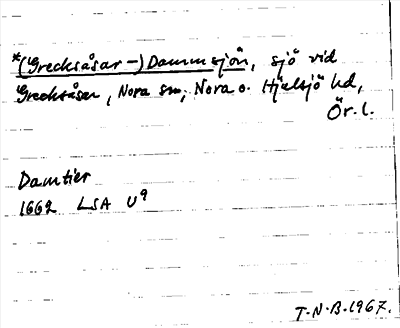 *(Grecksåsar-)Dammsjön, sjö vid
Grecksåsen, Nora sn, Nora o. Hjulsjö hd,
Ör. l.
Damtier
1662 LSA U9
T.N.B. 1967.